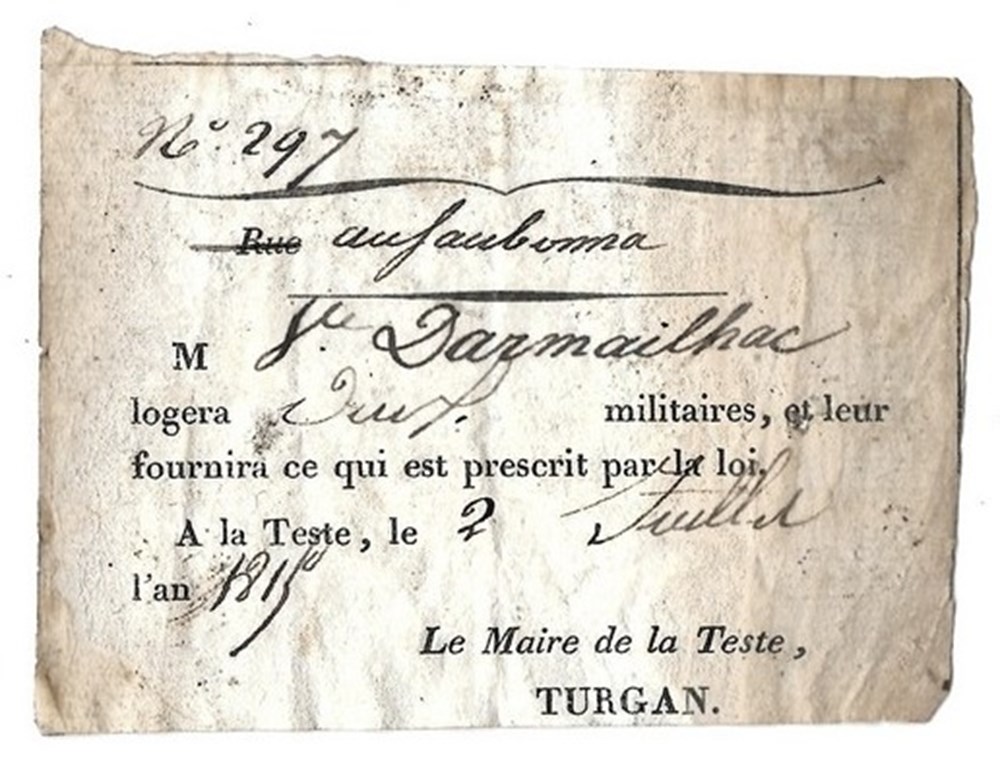 N.° 297
Rue au
M V.ve Darmailhac
logera Deux militaires, et leur
fournira ce qui est prescrit par la loi.
A la Teste, le 2 Juillet
l'an 1815
Le Maire de la Teste,
TURGAN.